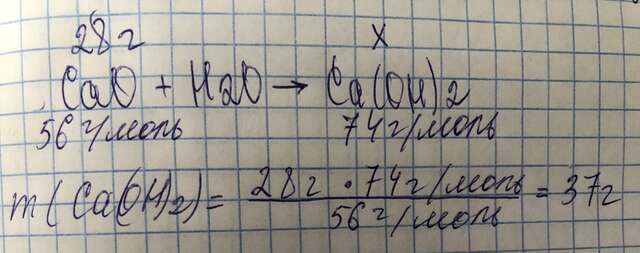 28 г x
CaO + H2O → Ca(OH)2
56 г/моль 74 г/моль
m(Ca(OH)2) = 28 г · 74 г/моль / 56 г/моль = 37 г